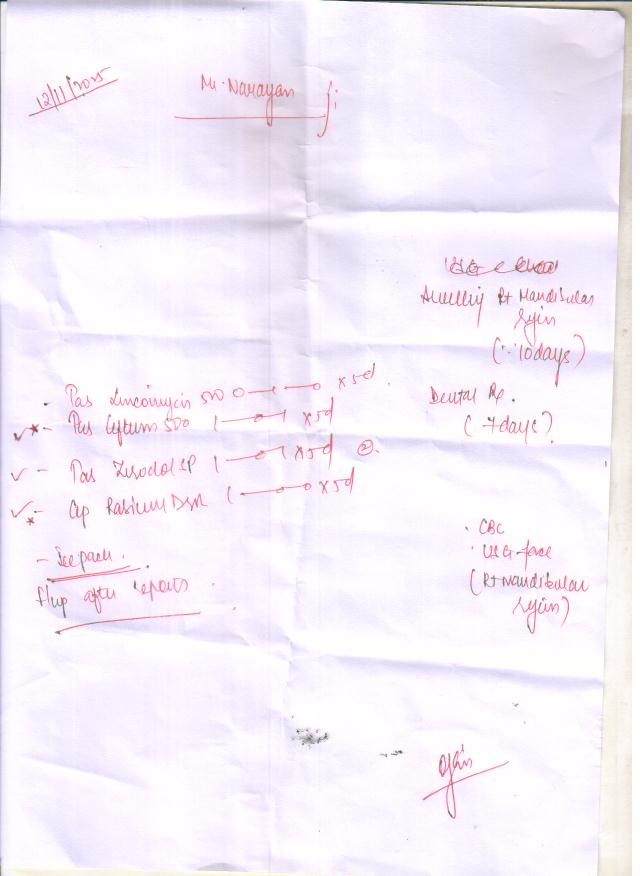 12/11/2025
Mr. Narayan ji
Swelling Rt Mandibular
region
(∵ 10 days)
- Tab Lincomycin 500 0—1—0 x 5d
Dental Rx.
(7 days)
✓* - Tab Ceftum 500 1—0—1 x 5d
✓ - Tab Zerodol SP 1—0—1 x 5d ②
✓* - Cap Rabium DSR 1—0—0 x 5d
- Ice pack.
f/up after reports.
· CBC
· USG-face
(Rt Mandibular
region)